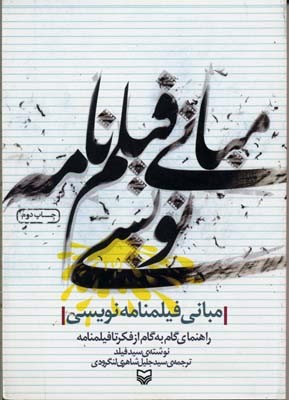 مبانی فیلمنامه نویسی
چاپ دوم
مبانی فیلمنامه‌نویسی
راهنمای گام‌به‌گام از فکر تا فیلمنامه
نوشته‌ی سید فیلد
ترجمه‌ی سید جلیل شاهری لنگرودی